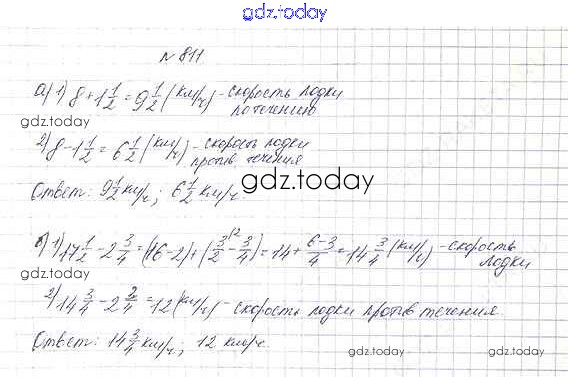 gdz.today
№ 811
а) 1) 8 + 1 1/2 = 9 1/2 (км/ч) - скорость лодки
по течению
gdz.today
2) 8 - 1 1/2 = 6 1/2 (км/ч) - скорость лодки
против течения
gdz.today
Ответ: 9 1/2 км/ч; 6 1/2 км/ч.
б) 1) 17 1/2 - 2 3/4 = (16-2) + (3/2 \2 - 3/4) = 14 + 6-3/4 = 14 3/4 (км/ч) - скорость
лодки
2) 14 3/4 - 2 3/4 = 12 (км/ч) - скорость лодки против течения
Ответ: 14 3/4 км/ч; 12 км/ч.
gdz.today
gdz.today